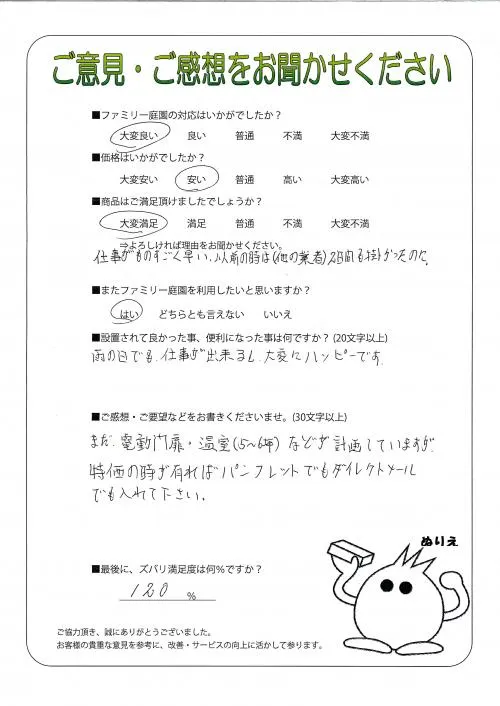 ご意見・ご感想をお聞かせください
■ファミリー庭園の対応はいかがでしたか？
大変良い 良い 普通 不満 大変不満
■価格はいかがでしたか？
大変安い 安い 普通 高い 大変高い
■商品はご満足頂けましたでしょうか？
大変満足 満足 普通 不満 大変不満
⇒よろしければ理由をお聞かせください。
仕事がものすごく早い、以前の時は(他の業者)2日間も掛かったのに。
■またファミリー庭園を利用したいと思いますか？
はい どちらとも言えない いいえ
■設置されて良かった事、便利になった事は何ですか？(20文字以上)
雨の日でも、仕事が出来るし、大変にハッピーです。
■ご感想・ご要望などをお書きくださいませ。(30文字以上)
まだ、電動門扉・温室(5～6坪)などが計画していますが
特価の時が有ればパンフレットでもダイレクトメール
でも入れて下さい。
ぬりえ
■最後に、ズバリ満足度は何％ですか？
120 ％
ご協力頂き、誠にありがとうございました。
お客様の貴重な意見を参考に、改善・サービスの向上に活かして参ります。